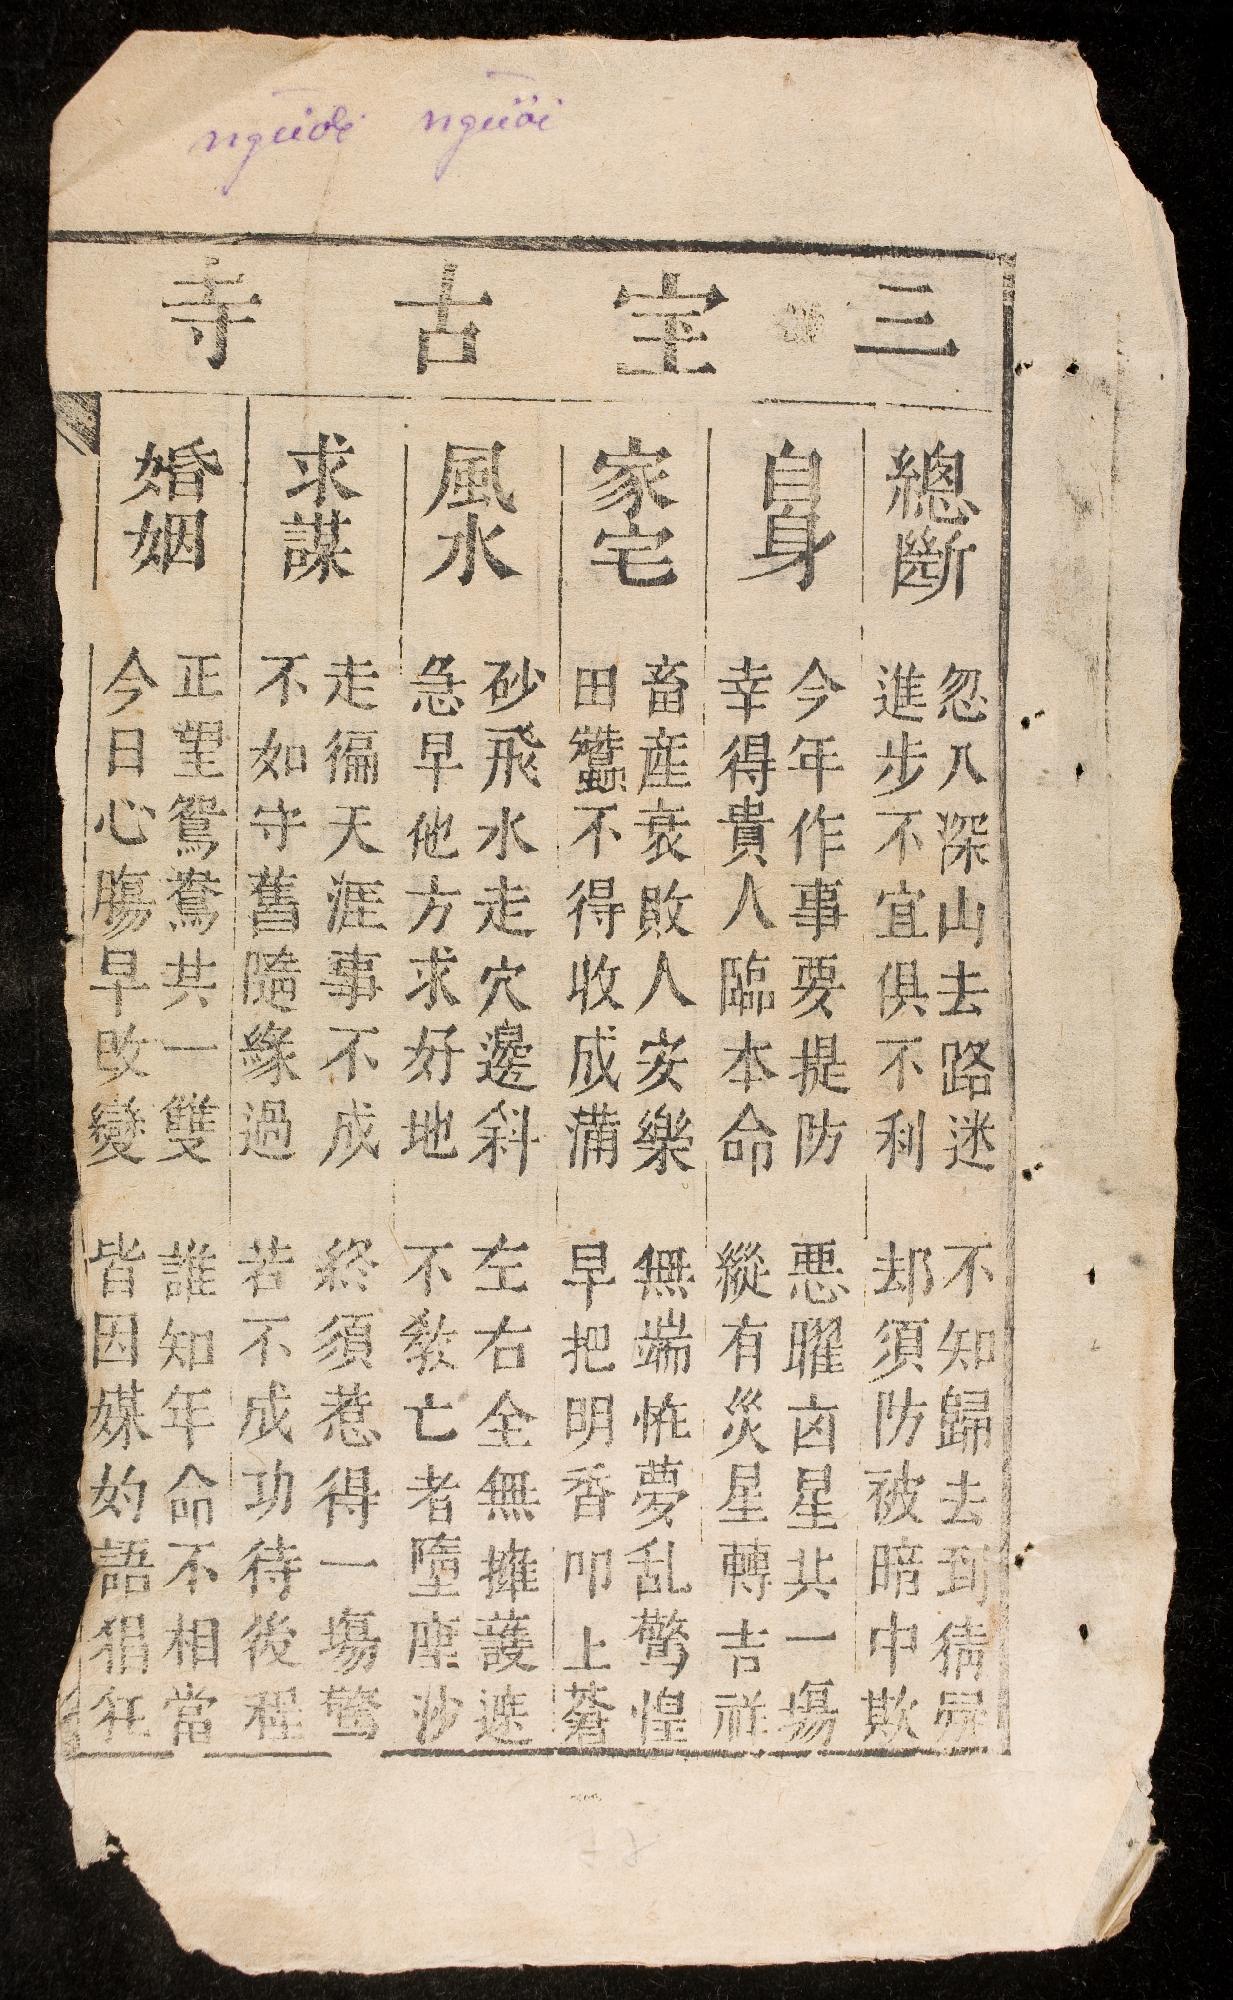 người người
三宝古寺
總斷
忽入深山去路迷 不知歸去到
進步不宜俱不利 却須防被暗中欺
自身
今年作事要提防 悪曜卤星共一場
幸得貴人臨本命 縱有災星轉吉祥
家宅
畜産衰敗人安樂 無端恠夢乱驚惶
田蠶不得收成滿 早把明香叩上蒼
風水
砂飛水走穴邊斜 左右全無擁護遮
急早他方求好地 不教亡者墮座沙
求謀
走徧天涯事不成 終須惹得一場驚
不如守舊隨緣過 若不成功待後程
婚姻
正望鴛鴦共一雙 誰知年命不相當
今日心腸早改變 皆因媒妁語猖狂